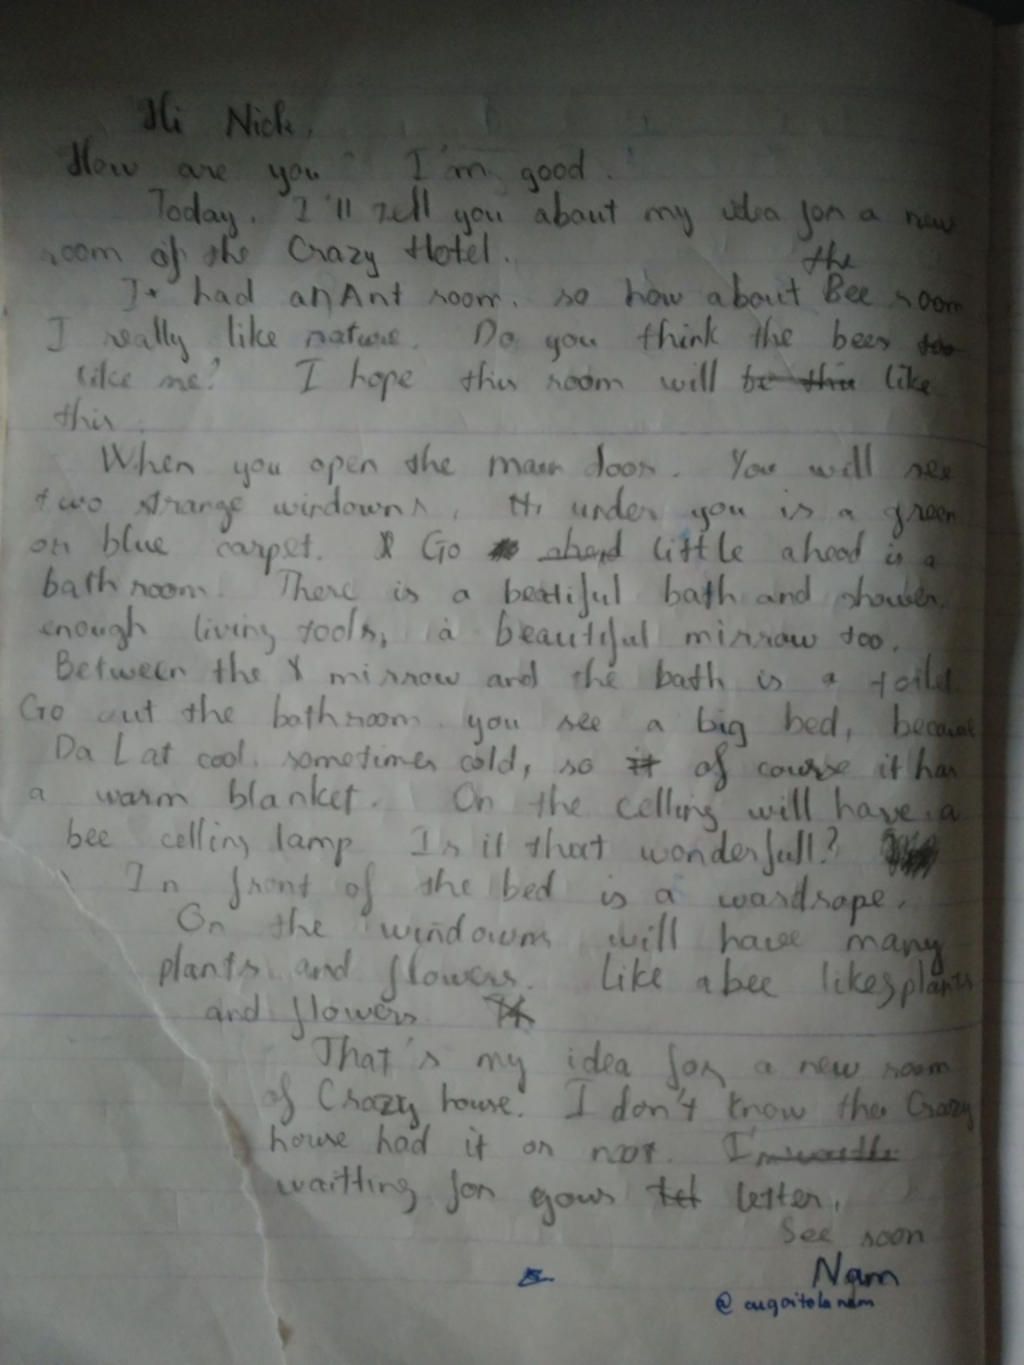 Hi Nick,
How are you? I'm good.
Today, I'll tell you about my idea for a new
room of the Crazy Hotel.
the
It had an Ant room, so how about Bee room
I really like nature. Do you think the bees too
like me? I hope this room will be this like
this.
When you open the main door. You will see
two strange windowns, under you is a green
on blue carpet. Go ahead little ahead is a
bathroom. There is a beatiful bath and shower,
enough living tools, a beautiful mirrow too.
Between the mirrow and the bath is a toilet
Go out the bathroom you see a big bed, because
Da Lat cool, sometimes cold, so it of course it has
a warm blanket. On the celling will have a
bee celling lamp Is it that wonderfull?
In front of the bed is a wardrape,
On the windowns will have many
plants and flowers. Like a bee likes plants
and flowers It
That's my idea for a new room
of Crazy house. I don't know the Crazy
house had it or not. I'm
waitting for your let letter,
See soon
Nam